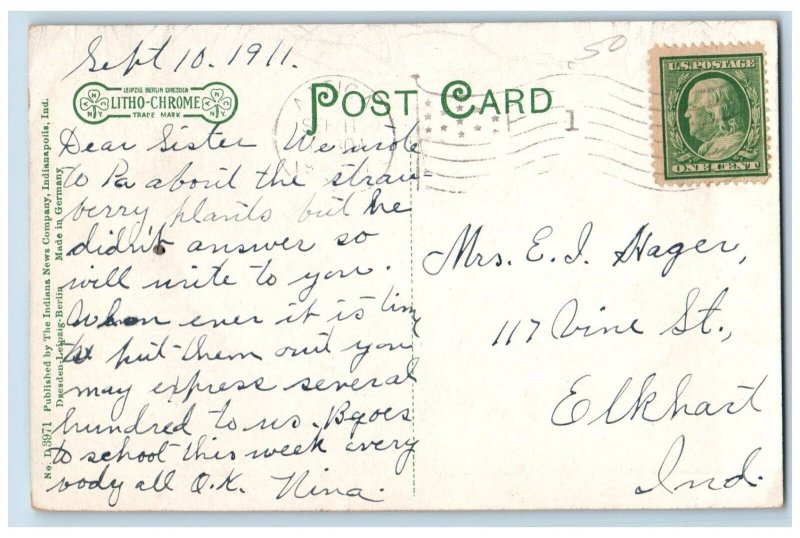 Sept 10. 1911.
.50
LEIPZIG BERLIN DRESDEN
LITHO-CHROME
TRADE MARK
POST CARD
1
U.S.POSTAGE
ONE CENT
Dear Sister We wrote
to Pa about the straw-
berry plants but he
didn't answer so
will write to you.
When ever it is time
to put them out you
may express several
hundred to us. B goes
to school this week every
body all O.K. Nina.
Mrs. E. I. Hager,
117 Vine St.,
Elkhart
Ind.
No. D.3971 Published by The Indiana News Company, Indianapolis, Ind.
Dresden-Leipzig-Berlin Made in Germany